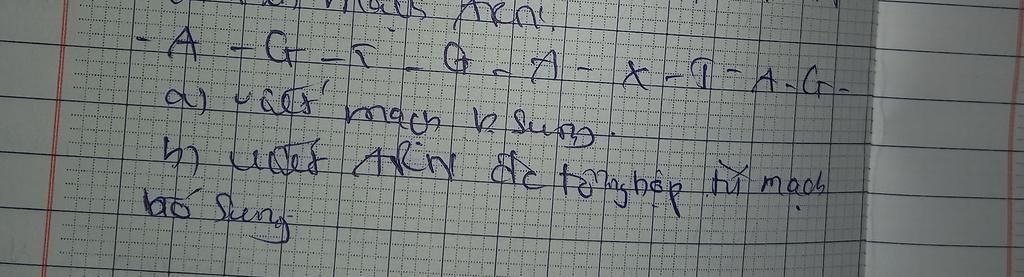 mạch ARN.
- A - G - T - G - A - X - T - A - G -
a) viết mạch b sung.
b) viết ARN đc tổng hợp từ mạch
bổ sung